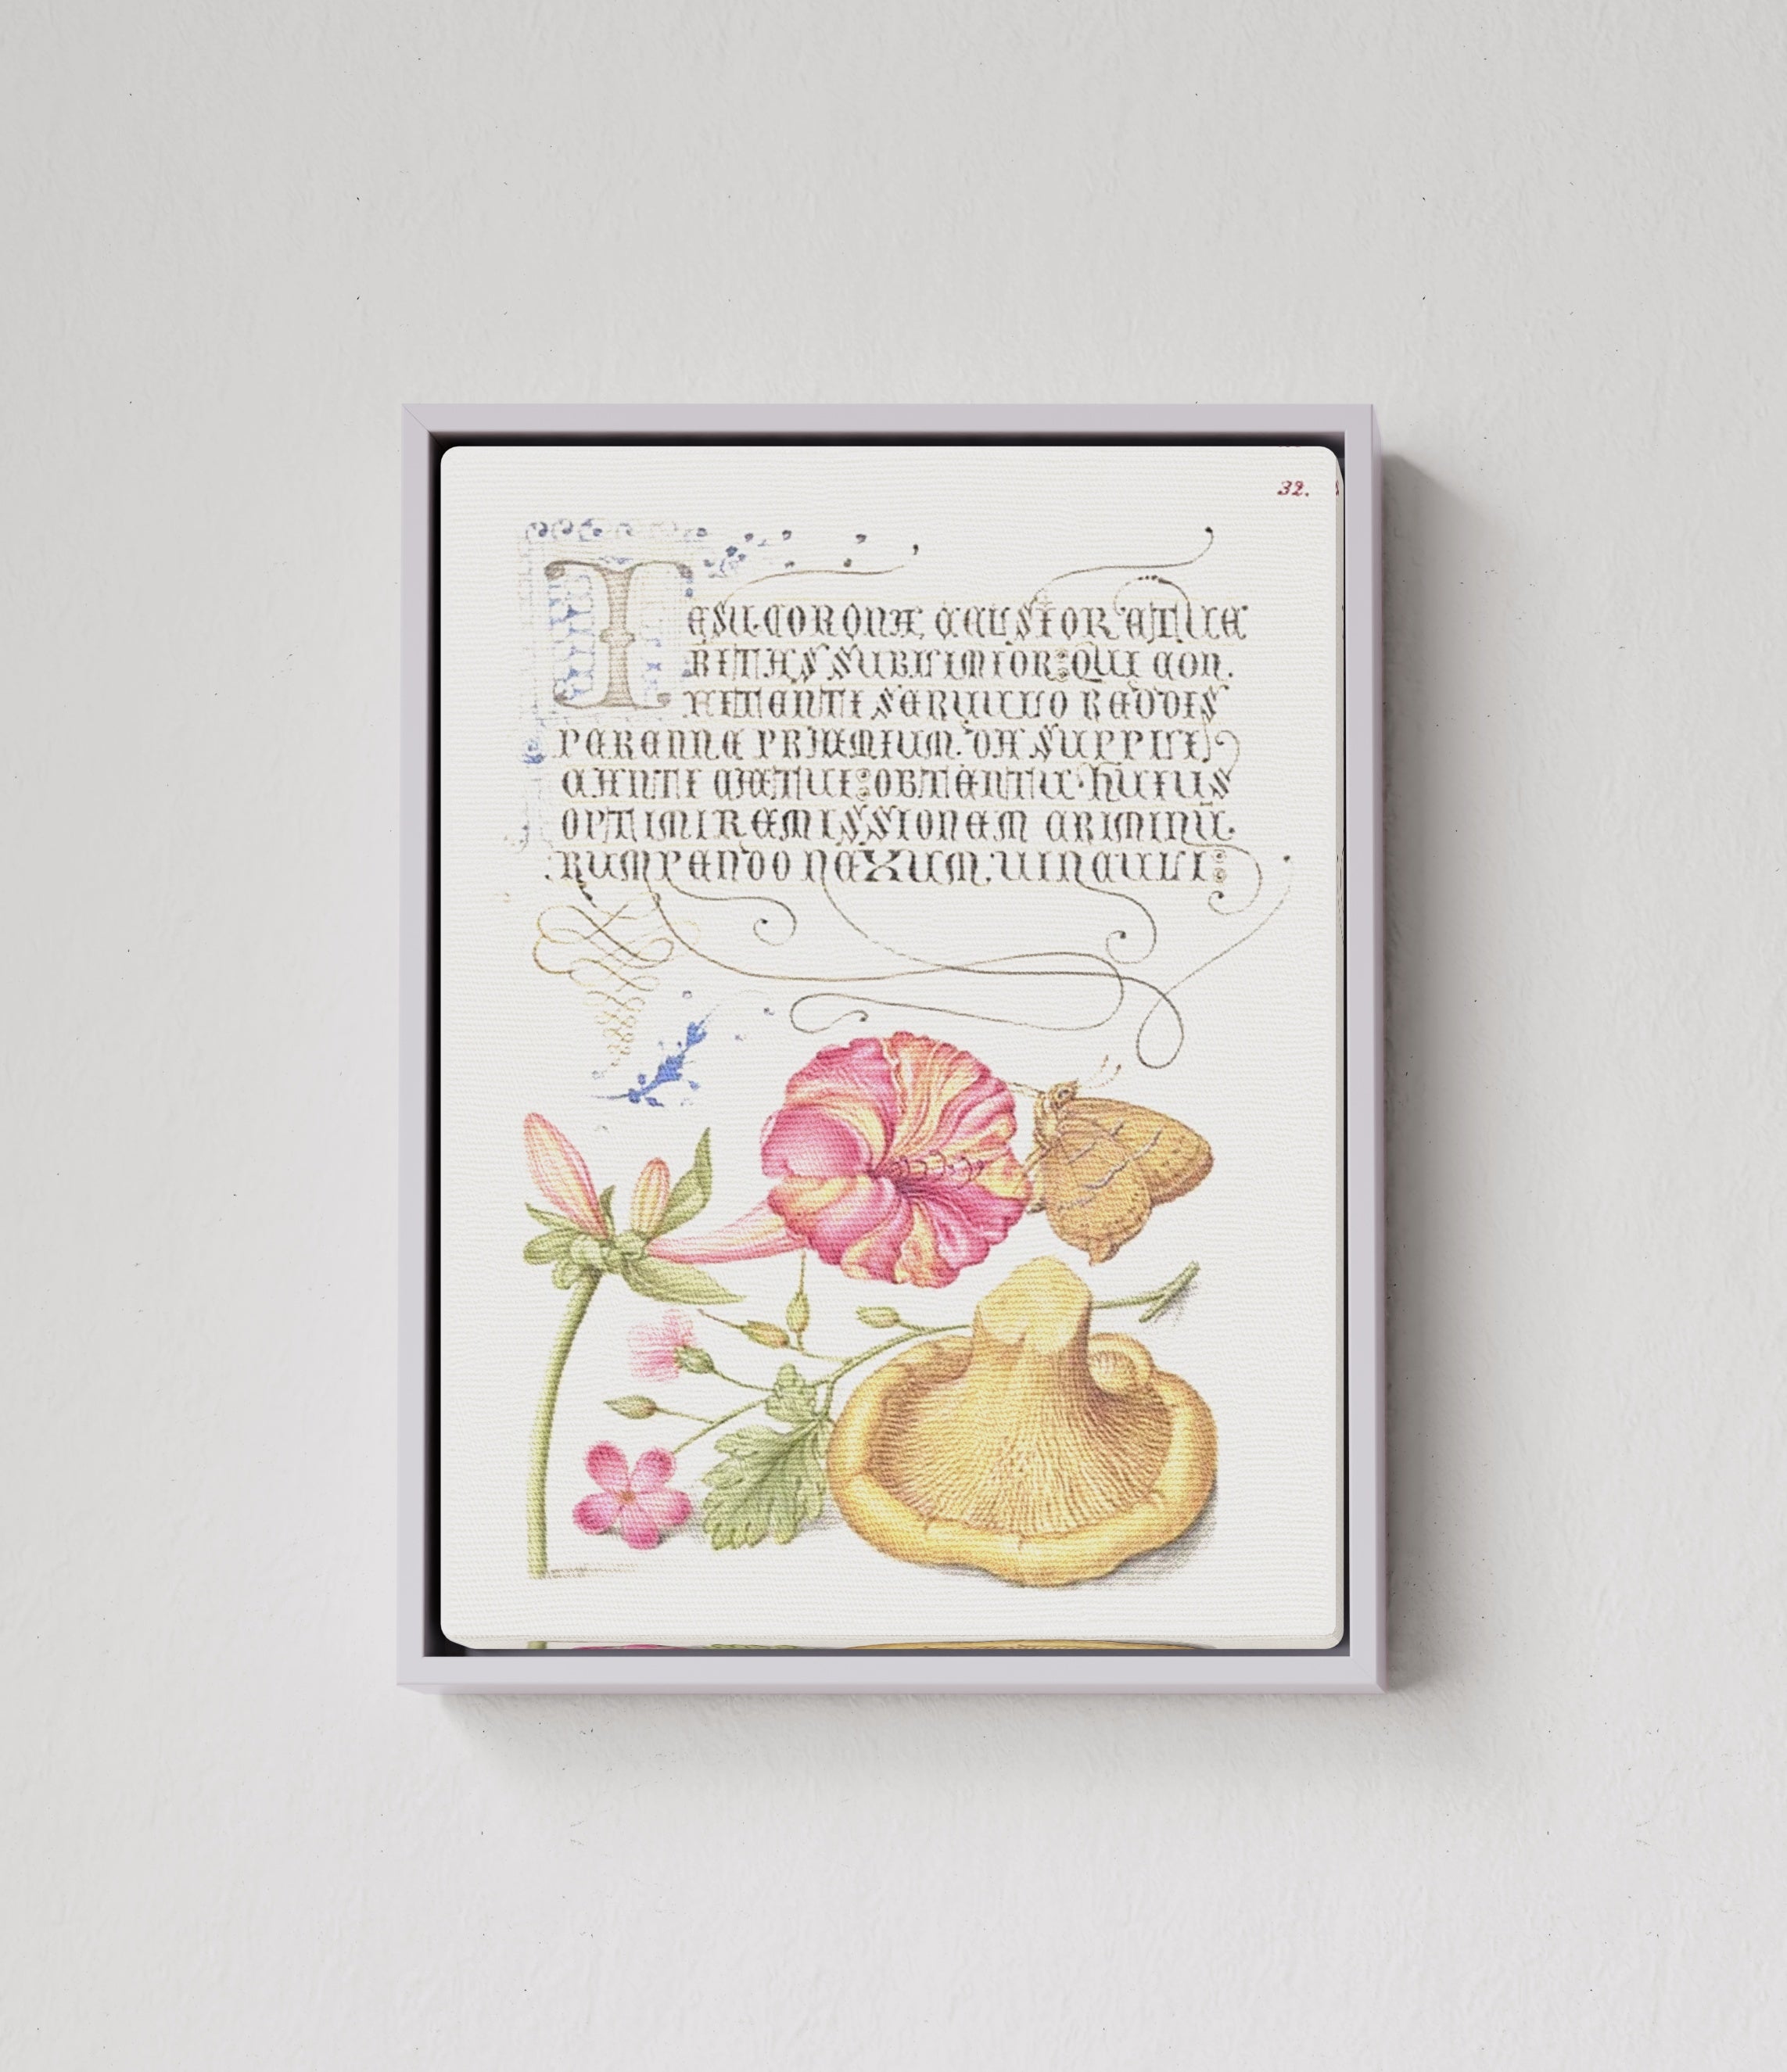 32.
IESU CORONA CELSIOR ET VE
RITAS SUBLIMIOR: QUI CON.
FITENTI SERVULO REDDIS
PERENNE PRÆMIUM. DA SUPPLI
CANTI CÆTUI: OBTENTU HUIUS
OPTIMI REMISSIONEM CRIMINU.
RUMPENDO NEXUM. UINCULI: